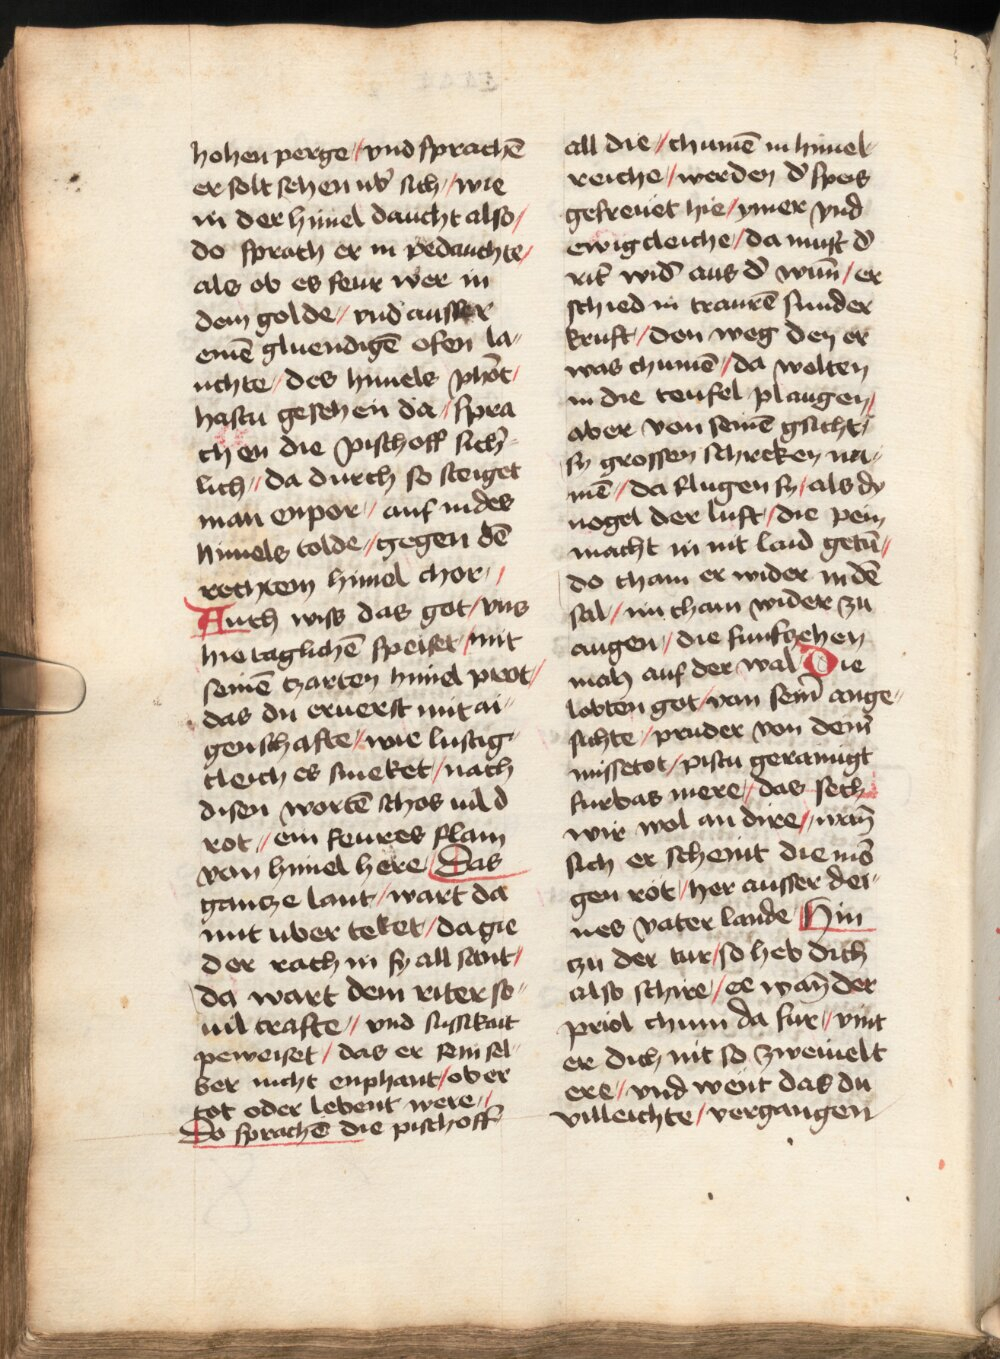 hohen perge // vnd sprachē
er solt sehen ub̾ sich / wie
in der himel daucht also /
do sprach er in pedauchte /
als ob es feur wer in
dem golde // vnd ausser
einē gluendigē ofen la-
uchte / des himels phort /
hastu gesehen da / spra
chen die pischoff sich̾-
lich // da durch so steiget
man enpor / auf in des
himels tolde // gegen dē
rechtem himel chor //
Auch wiss das got / vns
hie taglichē speiset / mit
seinē tzarten himel prot /
das du eruerst mit ai-
genschafte // wie lustig-
cleich es smeket / nach
disen wortē schos uil d
rot // ein feures flam
von himel here Das
gantze lant / wart da
mit uber teket / da gie
der rach in sy all sant /
da wart dem riter so-
uil crafte // vnd sussikait
peweiset / das er sein sel-
ber nicht enphant / ober
tot oder lebent were //
Do sprachē die pischoff
all die // chumē in himel-
reiche / werden d̾ speis
gefreuet hie / ymer vnd
ewigcleiche / da must d̾
rit̾ wid̾ aus d̾ wun̄ / er
schied in traurē sunder
kruft / den weg den er
was chumē / da wolten
in die teufel plaugen /
aber von seinē gsicht /
sy grossen schreken na-
mē // da flugen sy / als dy
uogel der luft / die pein
macht in nit laid getū //
do cham er wider in dē
sal / im cham wider zu
augen / die funfzehen
man auf der wal Die
lobten got / von seim̄ ange-
sichte / pruder von deim̄
missetot / pistu gerainigt
furbas mere // das sech
wir wol an dire // wan̄
sich er scheint die mō
gen rot / her ausser dei-
nes vater lande Hin
zu der tur / so heb dich
also schire / ee wan̄ der
priol chum da fur // vint
er dich nit so zweiuelt
ere // vnd went das du
villeichte / vergangen